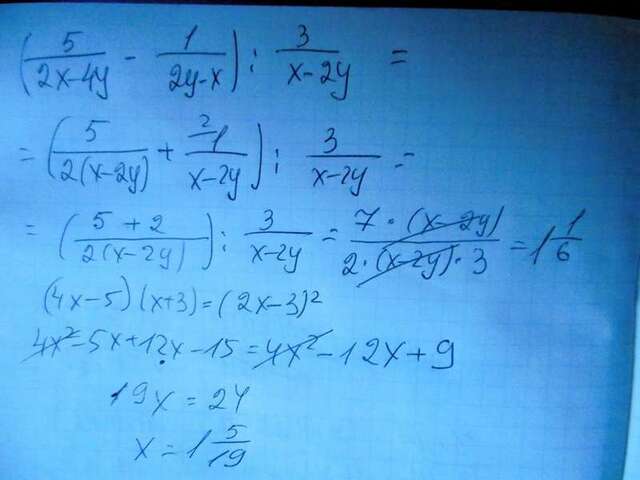 (5/(2x-4y) - 1/(2y-x)) : 3/(x-2y) =
= (5/(2(x-2y)) + 2 1/(x-2y)) : 3/(x-2y) =
= ((5+2)/(2(x-2y))) : 3/(x-2y) = (7·(x-2y))/(2·(x-2y)·3) = 1 1/6
(4x-5)(x+3)=(2x-3)²
4x²-5x+12x-15=4x²-12x+9
19x=24
x=1 5/19